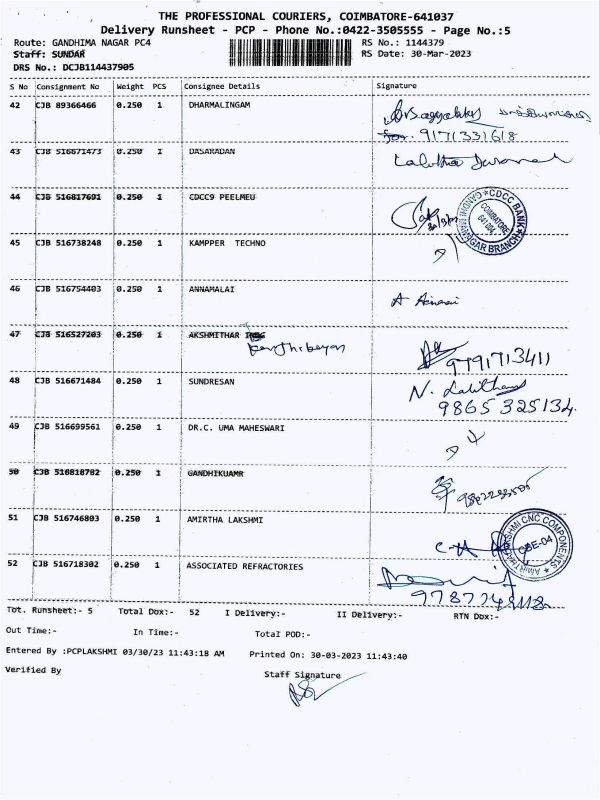 THE PROFESSIONAL COURIERS, COIMBATORE-641037
Delivery Runsheet - PCP - Phone No.:0422-3505555 - Page No.:5
Route: GANDHIMA NAGAR PC4
RS No.: 1144379
Staff: SUNDAR
RS Date: 30-Mar-2023
DRS No.: DCJB114437905
S No Consignment No Weight PCS Consignee Details Signature
42 CJB 89366466 0.250 1 DHARMALINGAM
for. 9171331618
43 CJB 516671473 0.250 1 DASARADAN
44 CJB 516817691 0.250 1 CDCC9 PEELMEU
CDCC BANK COIMBATORE 641004 GANDHI MAANAGAR BRANCH
45 CJB 516738248 0.250 1 KAMPPER TECHNO
46 CJB 516754403 0.250 1 ANNAMALAI
47 CJB 516527203 0.250 1 AKSHMITHAR
9791713411
48 CJB 516671484 0.250 1 SUNDRESAN
N. Lalitha
9865325134
49 CJB 516699561 0.250 1 DR.C. UMA MAHESWARI
50 CJB 516818782 0.250 1 GANDHIKUAMR
51 CJB 516746803 0.250 1 AMIRTHA LAKSHMI
AMIRTHALAKSHMI CNC COMPONENTS CBE-04
52 CJB 516718302 0.250 1 ASSOCIATED REFRACTORIES
Tot. Runsheet:- 5 Total Dox:- 52 I Delivery:- II Delivery:- RTN Dox:-
Out Time:- In Time:- Total POD:-
Entered By :PCPLAKSHMI 03/30/23 11:43:18 AM Printed On: 30-03-2023 11:43:40
Verified By Staff Signature